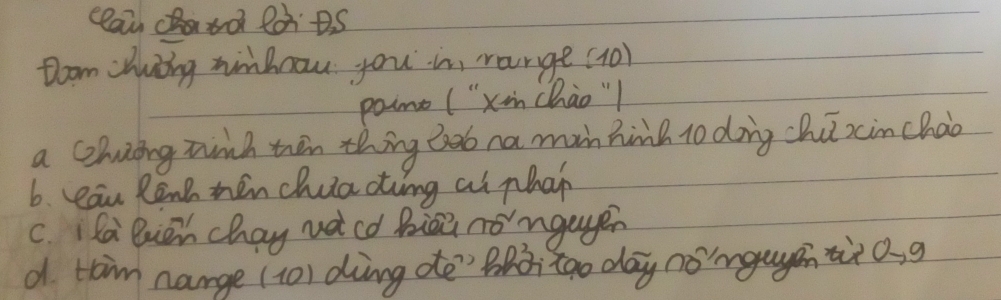 Câu trả lời ĐS
Đoạn chương trình sau: for i in range (10)
print ("xin chào")
a chương trình trên thông báo ra màn hình 10 dòng chữ xin chào
b. Câu lệnh trên chưa đúng cú pháp
c. i là biến chạy và có kiểu số nguyên
d. Hàm range (10) dùng để khởi tạo dãy số nguyên từ 0→9